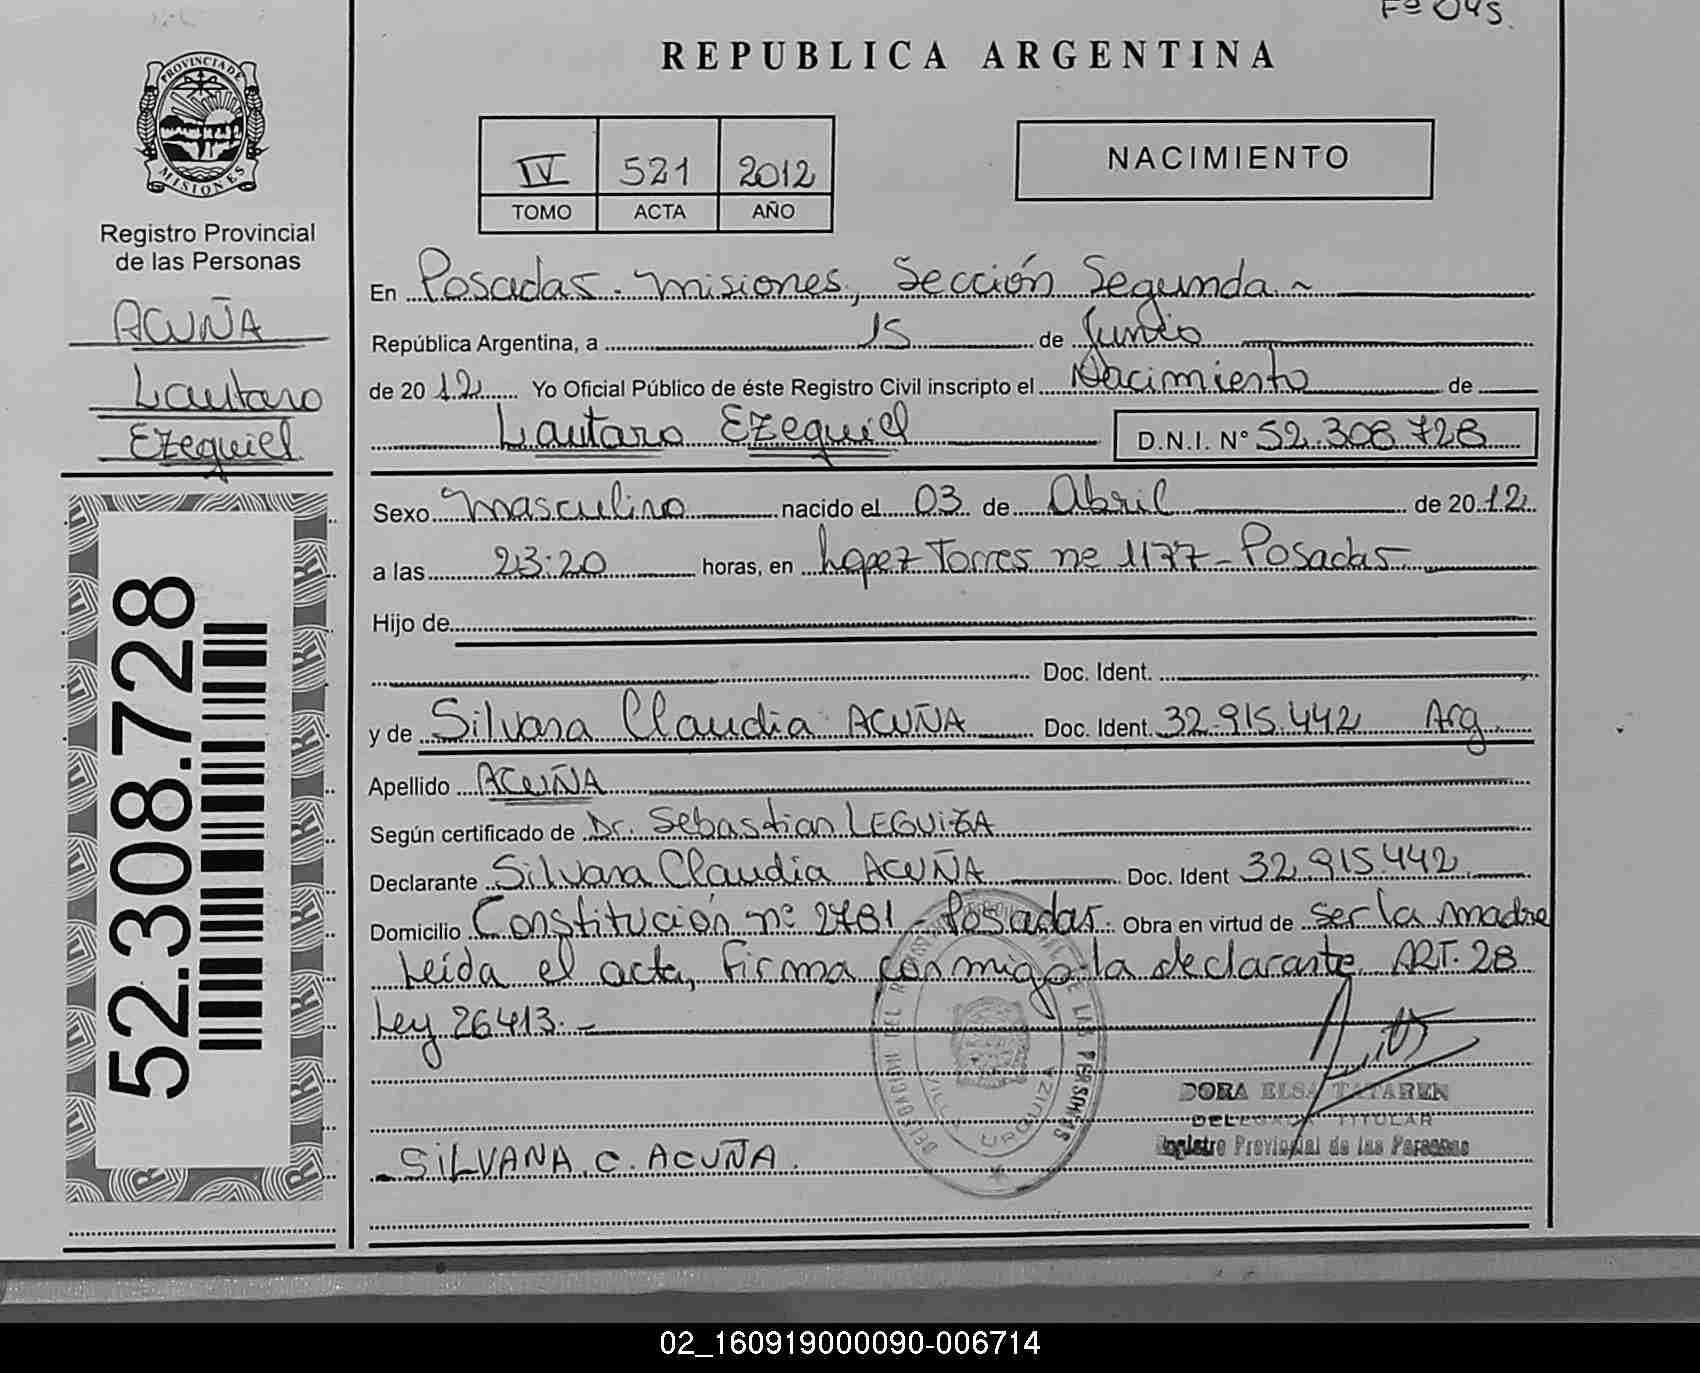 Fº 045.
REPUBLICA ARGENTINA
PROVINCIA DE
MISIONES
Registro Provincial
de las Personas
ACUÑA
Lautaro
Ezequiel
52.308.728
IV 521 2012
TOMO ACTA AÑO
NACIMIENTO
En Posadas. Misiones, Sección Segunda ~
República Argentina, a 15 de Junio
de 2012 Yo Oficial Público de éste Registro Civil inscripto el Nacimiento de
Lautaro Ezequiel D.N.I. Nº 52.308.728
Sexo Masculino nacido el 03 de Abril de 2012
a las 23:20 horas, en Lopez Torres nº 1177 - Posadas
Hijo de
Doc. Ident.
y de Silvana Claudia ACUÑA Doc. Ident. 32.915.442 Arg.
Apellido ACUÑA
Según certificado de Dr. Sebastian LEGUIZA
Declarante Silvana Claudia ACUÑA Doc. Ident 32.915.442
Domicilio Constitución nº 2781 - Posadas. Obra en virtud de ser la madre
Leída el acta, firma conmigo la declarante ART. 28
Ley 26413.-
DELEGACION DEL REGISTRO PROVINCIAL DE LAS PERSONAS
VILLA URQUIZA
DORA ELSA TATAREN
DELEGADA TITULAR
Registro Provincial de las Personas
SILVANA C. ACUÑA.
02_160919000090-006714